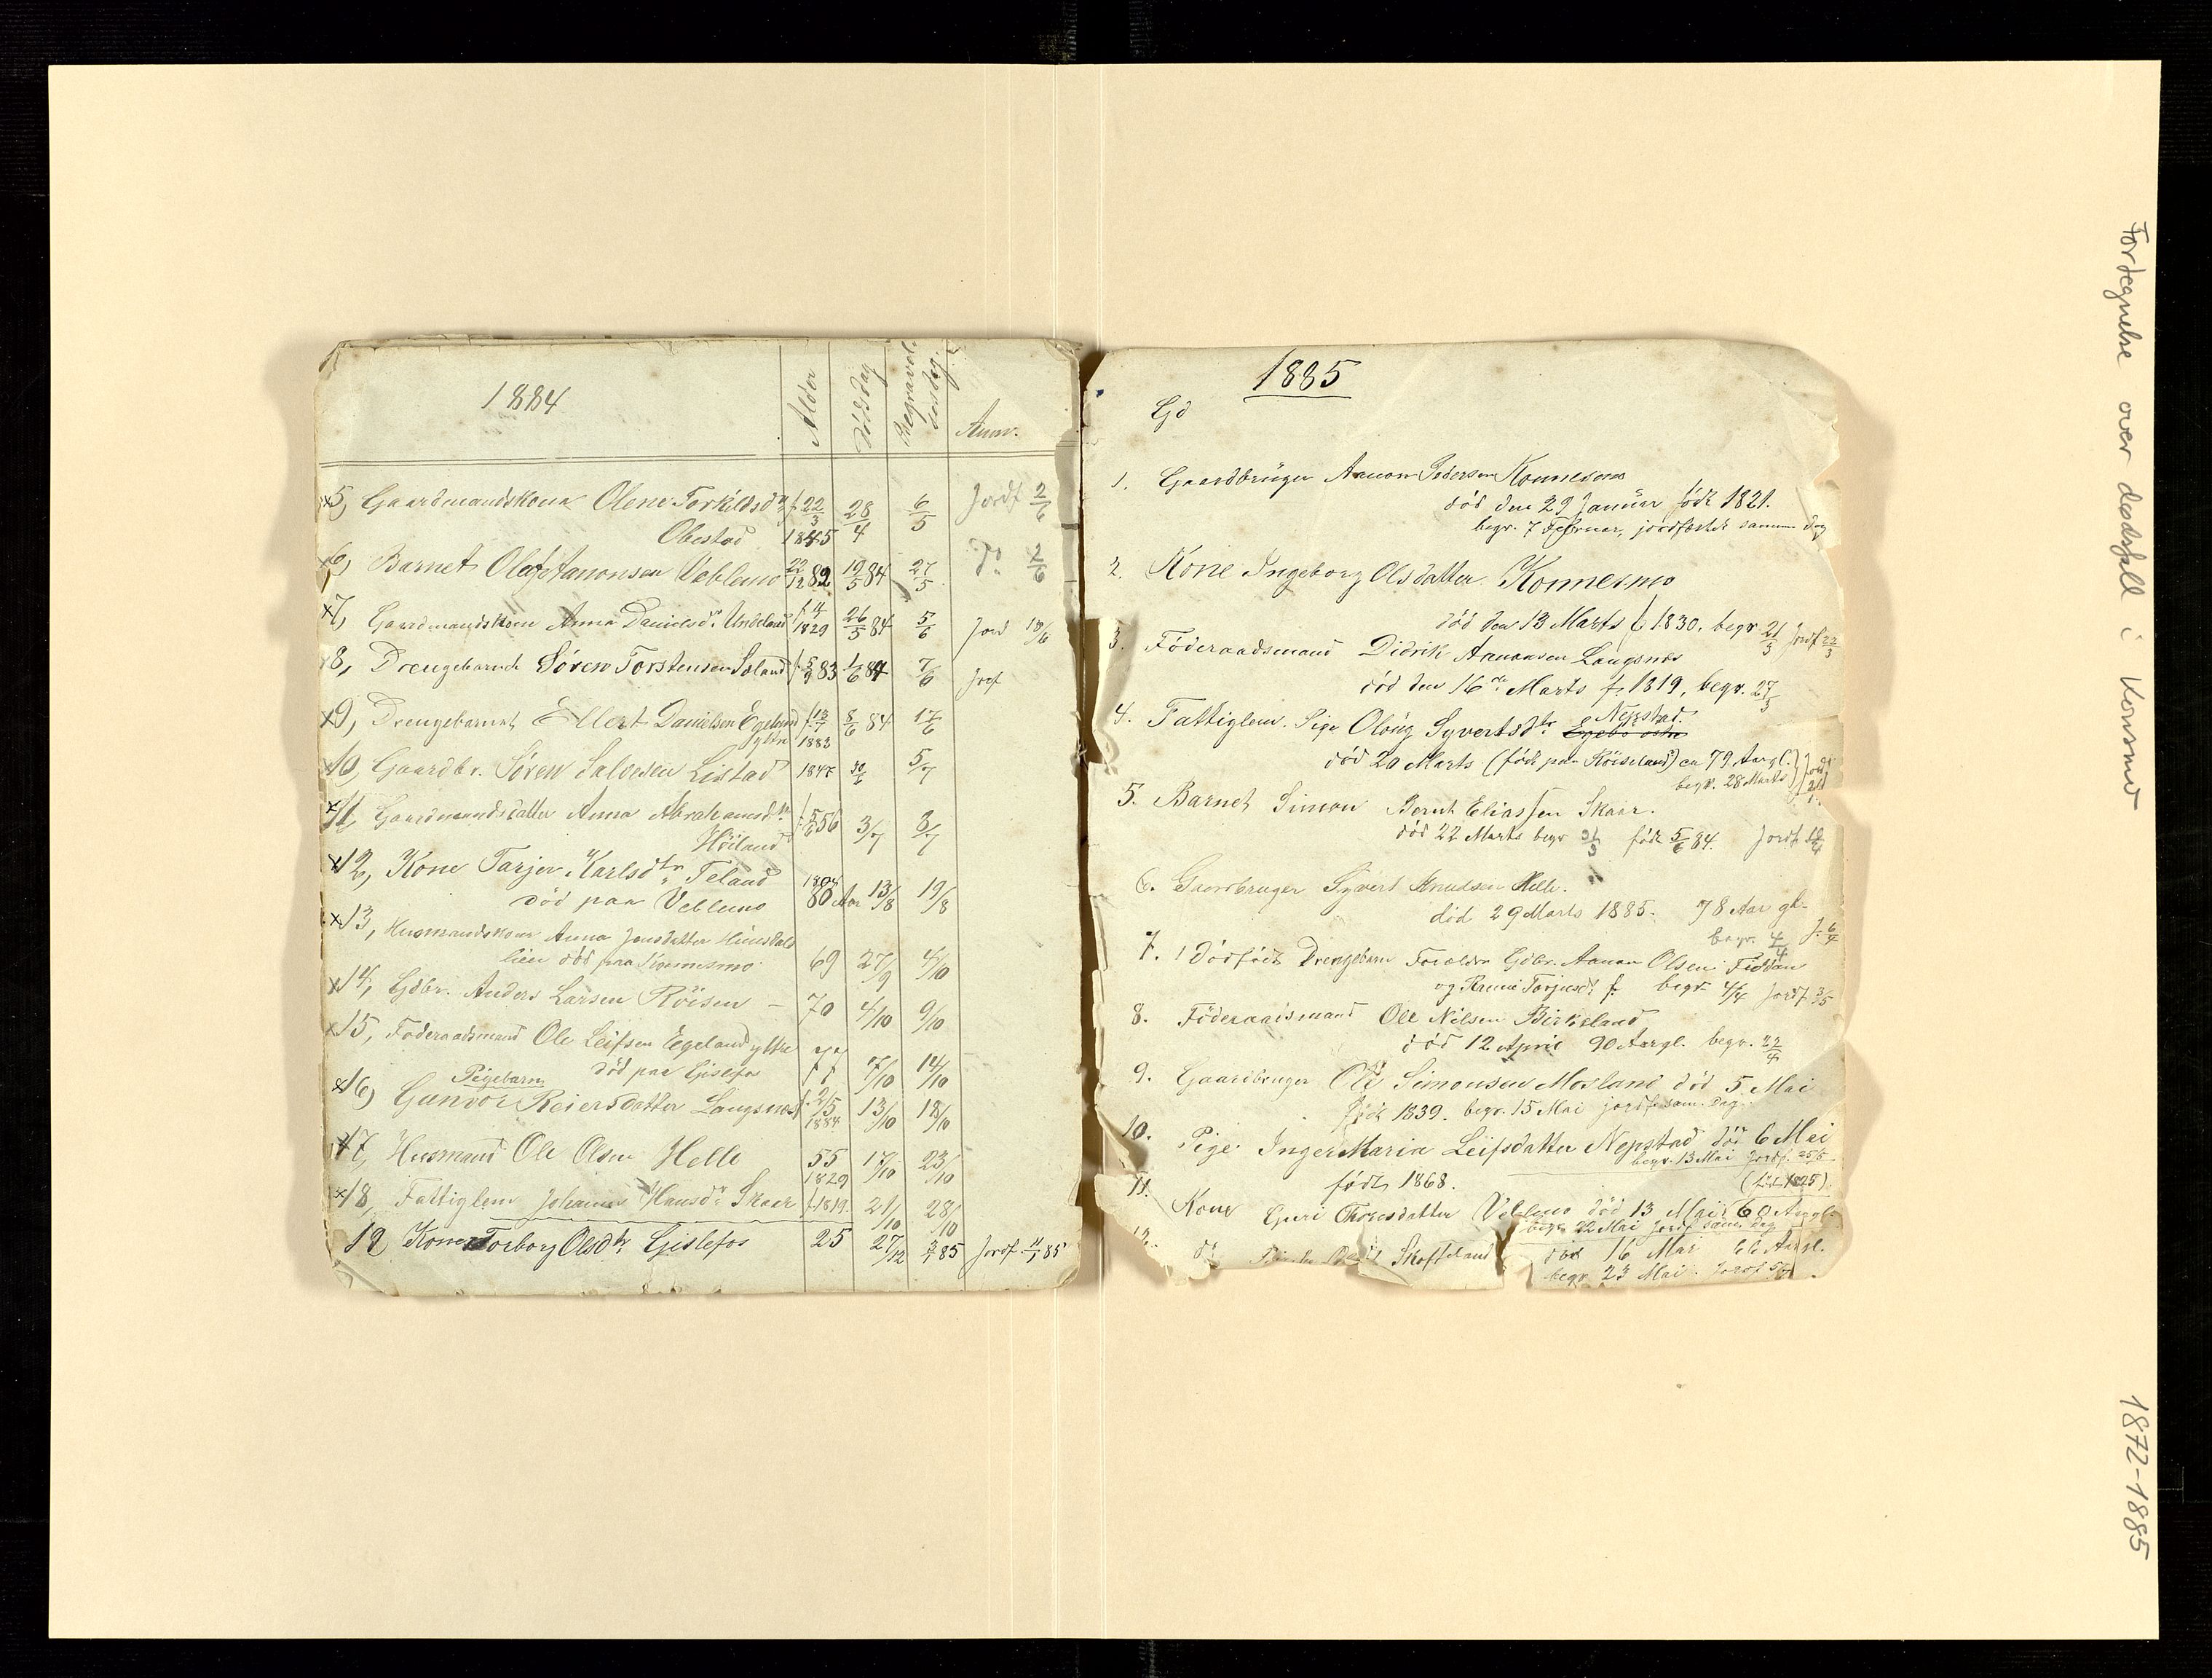 1884
Alder
Dödsdag
Begravelsesdag
Anm.
x5, Gaardmandskone Olene Torkildsdtr f. 22/3 28/4 6/5 Jordf 2/6
Obestad 1845
x6, Barnet Olaf Aanonsen Veblemo 22/12 82 19/5 84 27/5 Do 2/6
x7, Gaardmandskone Anna Danielsdr. Undeland f. 4/ 1829 26/5 84 5/6 Jord 10/6
x8, Drengebarnet Sören Torstensen Soland f. 5/9 83 1/6 84 7/6 Jorf
x9, Drengebarnet Ellert Danielsen Egeland f. 13/7 8/6 84 17/6
yttre 1883
x10, Gaardbr. Sören Salvesen Listad 1847 30/6 5/7
x11, Gaardmandsdatter Anna Abrahamsdtr f. 5/6 56 3/7 8/7
Höiland
x12, Kone Tarjer Karlsdtr. Teland 1804
död paa Veblemo 80 Aar 13/8 19/8
x13, Husmandskone Anna Jensdatter Hinsdals
lien död paa Konnesmo 69 27/9 4/10
x14, Gdbr. Anders Larsen Röisen – 70 4/10 9/10
x15, Föderaadsmand Ole Leifsen Egeland yttre
död paa Gislefos 77 7/10 14/10
Pigebarn
x16, Gunvor Reiersdatter Langsnes f. 2/5 1884 13/10 18/10
x17, Husmand Ole Olsen Helle 55 17/10 23/10
1829
x18, Fattiglem Johanne Hansdr. Skaar f. 1819. 21/10 28/10
19 Kone Torborg Olsdtr. Gislefos 25 27/12 3/1 85 Jordf 11/1 85
1885
Gd
1. Gaardbruger Aanon Pedersen Konnesmo
död den 29 Januar född 1821.
begr. 7 Februar, jordfæstet samme dag
2. Kone Ingeborg Olsdatter Konnesmo
död den 13 Marts f. 1830. begr. 21/3 Jordf 22/3
3. Föderaadsmand Didrik Aanonsen Langsnes
död den 16de Marts f. 1819, begr. 27/3
4. Fattiglem. Pige Olöug Syvertsdtr. Egebö östre Nepstad.
död 20 Marts (född paa Röiseland) ca 79 Aar gl.
begr. 28 Marts
5. Barnet Simon Bernt Eliassen Skaar.
död 22 Marts begr 31/3 född 5/6 84. Jordf
6. Gaardbruger Syvert Knudsen Helle.
död 29 Marts 1885. 78 Aar gl.
begr. 4/4 J. 6/4
7. 1 Dödfödt Drengebarn Forældre Gdbr. Aanon Olsen Fiddan
og Torjusdr. f. begr 4/4 Jordf 3/5
8. Föderaadsmand Ole Nilsen Birkeland
död 12 April 90 Aar gl. begr. 22/4
9. Gaardbruger Ole Simonsen Mosland död 5 Mai
född 1839. begr. 15 Mai jordf. sam. Dag.
10. Pige Inger Maria Leifsdatter Nepstad död 6 Mai
begr. 13 Mai Jordf. 25/5
född 1868. (född 1825)
11. Kone Guri Thoresdatter Veblemo död 13 Mai 60 Aar gl.
begr. 22 Mai Jordf sam. Dag
12. do Skofteland död 16 Mai 66 Aar gl.
begr. 23 Mai. Jordf
Fortegnelse over dødsfall i Konsmo 1872-1885